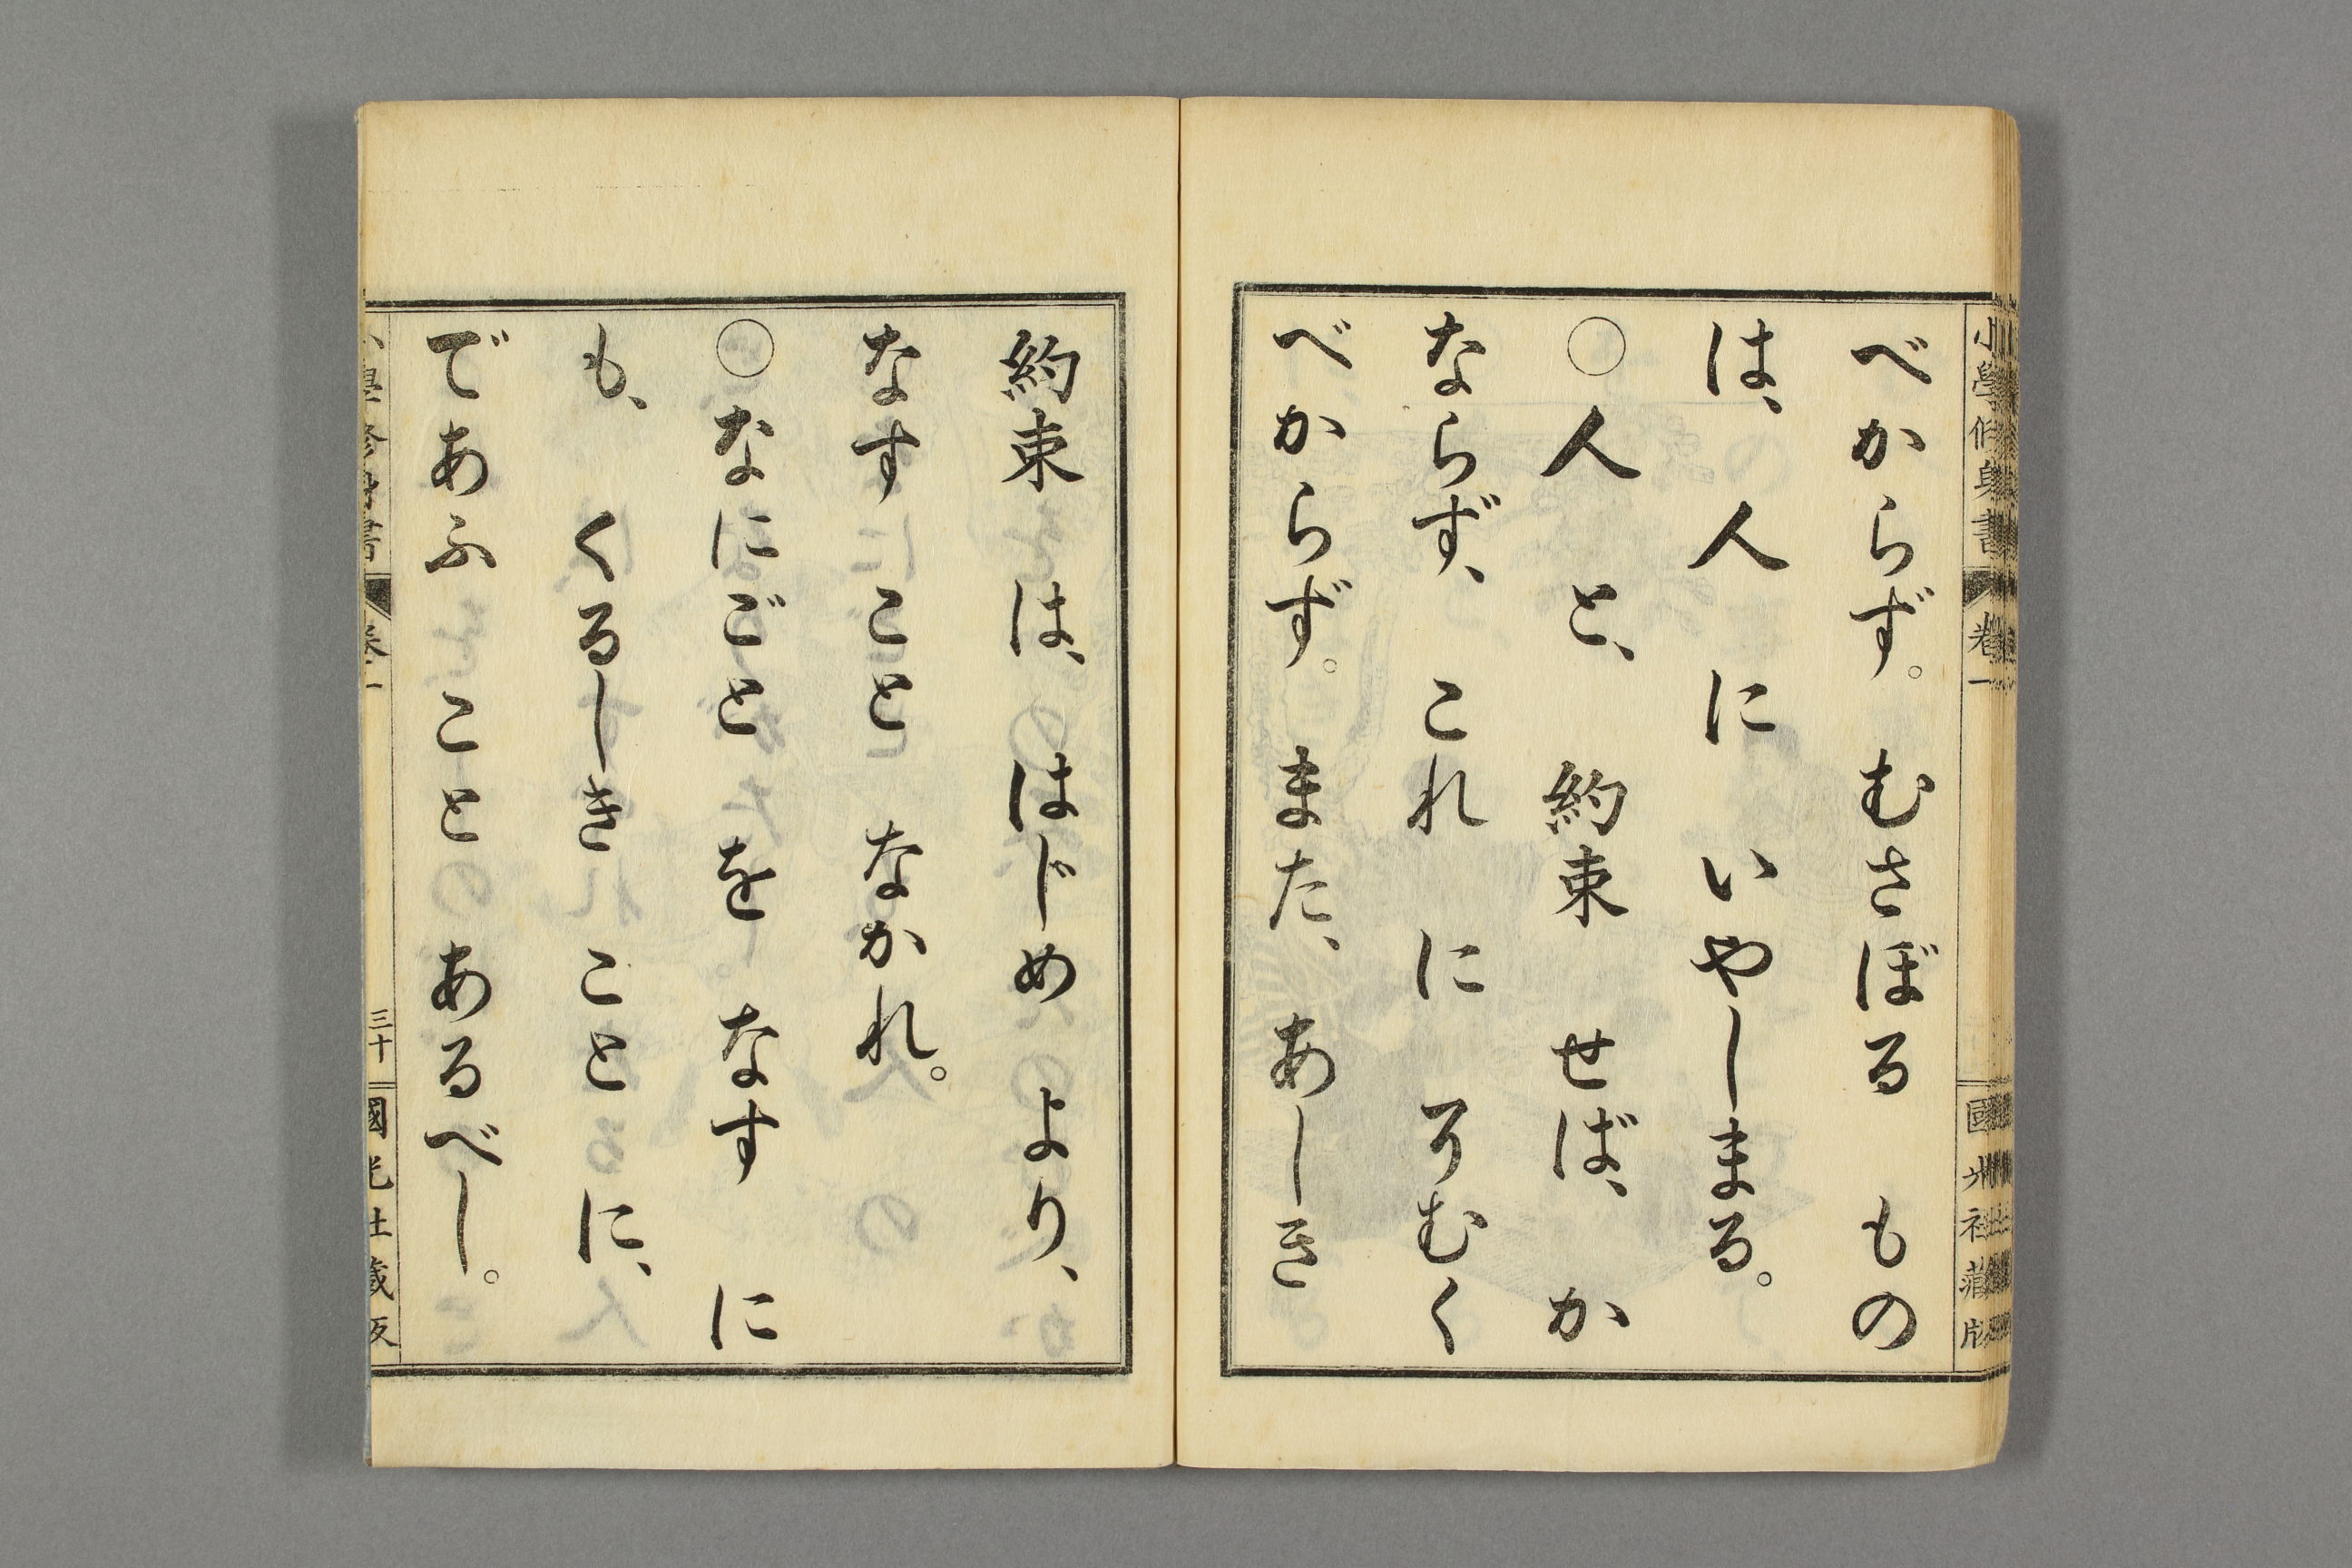 小學修身書 卷一 國光社藏版
べからず。むさぼる もの
は、人 に いやしまる。
○人 と、約束 せば、か
ならず、これ に そむく
べからず。また、あしき
約束 は、はじめ より、
なす こと なかれ。
○なにごと を なす に
も、くるしき こと に、
であふ こと あるべし。
小學修身書 卷一 三十 國光社藏版